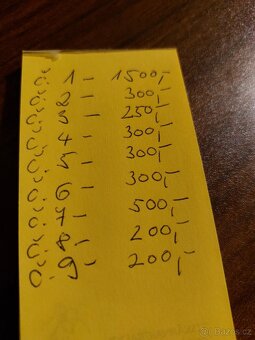 Č. 1 - 1500,-
Č. 2 - 300,-
Č. 3 - 250,-
Č. 4 - 300,-
Č. 5 - 300,-
Č. 6 - 300,-
Č. 7 - 500,-
Č. 8 - 200,-
Č. 9 - 200,-